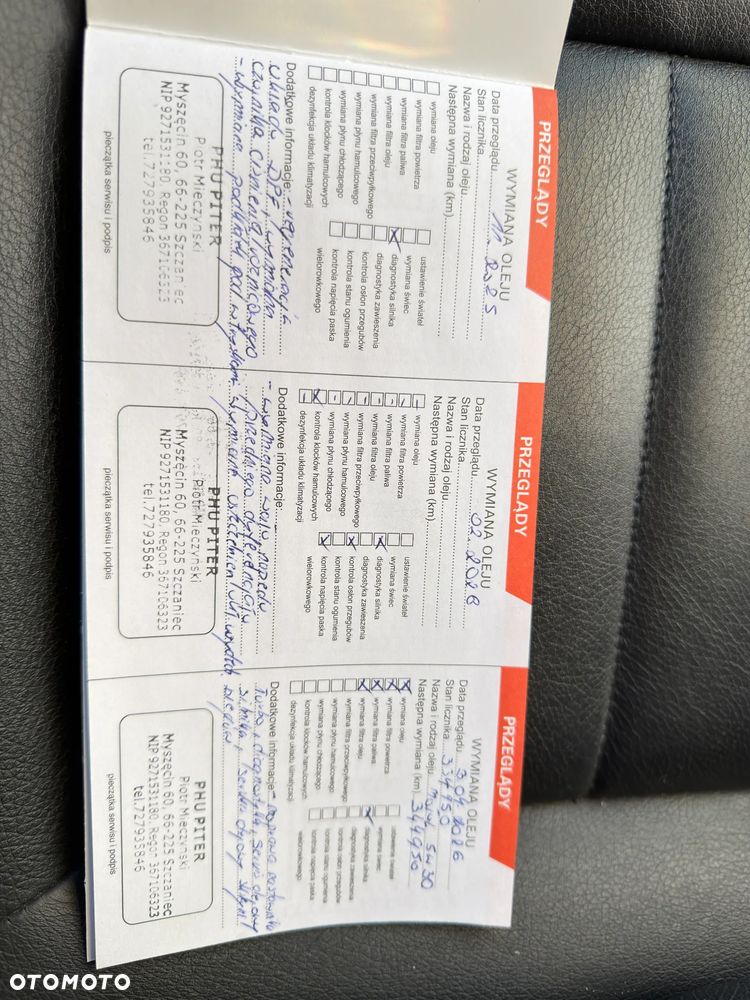 PRZEGLĄDY
WYMIANA OLEJU
Data przeglądu 11. 2025
Stan licznika
Nazwa i rodzaj oleju
Następna wymiana (km)
wymiana oleju
wymiana filtra powietrza
wymiana filtra paliwa
wymiana filtra oleju
wymiana filtra przeciwpyłkowego
wymiana płynu hamulcowego
wymiana płynu chłodzącego
kontrola klocków hamulcowych
dezynfekcja układu klimatyzacji
ustawienie świateł
wymiana świec
diagnostyka silnika
diagnostyka zawieszenia
kontrola osłon przegubów
kontrola stanu ogumienia
kontrola napięcia paska
wielorowkowego
Dodatkowe informacje: - regeneracja
układu DPF, wymiana
czujnika ciśnienia
- wymiana
PHU PITER
Piotr Mieczyński
Myszęcin 60, 66-225 Szczaniec
NIP 9271531180, Regon 367106323
tel.727935846
pieczątka serwisu i podpis
PRZEGLĄDY
WYMIANA OLEJU
Data przeglądu 02. 2026
Stan licznika
Nazwa i rodzaj oleju
Następna wymiana (km)
wymiana oleju
wymiana filtra powietrza
wymiana filtra paliwa
wymiana filtra oleju
wymiana filtra przeciwpyłkowego
wymiana płynu hamulcowego
wymiana płynu chłodzącego
kontrola klocków hamulcowych
dezynfekcja układu klimatyzacji
ustawienie świateł
wymiana świec
diagnostyka silnika
diagnostyka zawieszenia
kontrola osłon przegubów
kontrola stanu ogumienia
kontrola napięcia paska
wielorowkowego
Dodatkowe informacje: -
- wymiana wału napędu
przedniego
wymiana uszczelnień
PHU PITER
Piotr Mieczyński
Myszęcin 60, 66-225 Szczaniec
NIP 9271531180, Regon 367106323
tel.727935846
pieczątka serwisu i podpis
PRZEGLĄDY
WYMIANA OLEJU
Data przeglądu 3.04.2026
Stan licznika 334950
Nazwa i rodzaj oleju 5W30
Następna wymiana (km) 344950
wymiana oleju
wymiana filtra powietrza
wymiana filtra paliwa
wymiana filtra oleju
wymiana filtra przeciwpyłkowego
wymiana płynu hamulcowego
wymiana płynu chłodzącego
kontrola klocków hamulcowych
dezynfekcja układu klimatyzacji
ustawienie świateł
wymiana świec
diagnostyka silnika
diagnostyka zawieszenia
kontrola osłon przegubów
kontrola stanu ogumienia
kontrola napięcia paska
wielorowkowego
Dodatkowe informacje - naprawa
Turbo, diagnostyka, serwis olejowy
silnika, serwis olejowy
PHU PITER
Piotr Mieczyński
Myszęcin 60, 66-225 Szczaniec
NIP 9271531180, Regon 367106323
tel.727935846
pieczątka serwisu i podpis
OTOMOTO